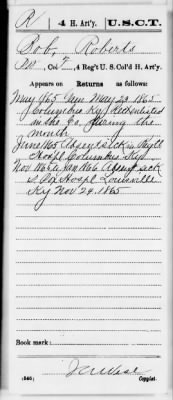 R | 4 H. Art'y. | U.S.C.T.
Bob Roberts
Pvt, Co. F, 4 Reg't U. S. Col'd H. Art'y.
Appears on Returns as follows:
May 1865 Gain May 23, 1865
Columbus Ky. Re-enlisted
in the Co. during the
month
June 1865 Absent sick in Regtl
Hospl Columbus Ky.
Nov 1865 to Jan 1866 Absent sick
S. Pox Hospl Louisville
Ky Nov 24. 1865
Book mark:
(546)
Copyist.